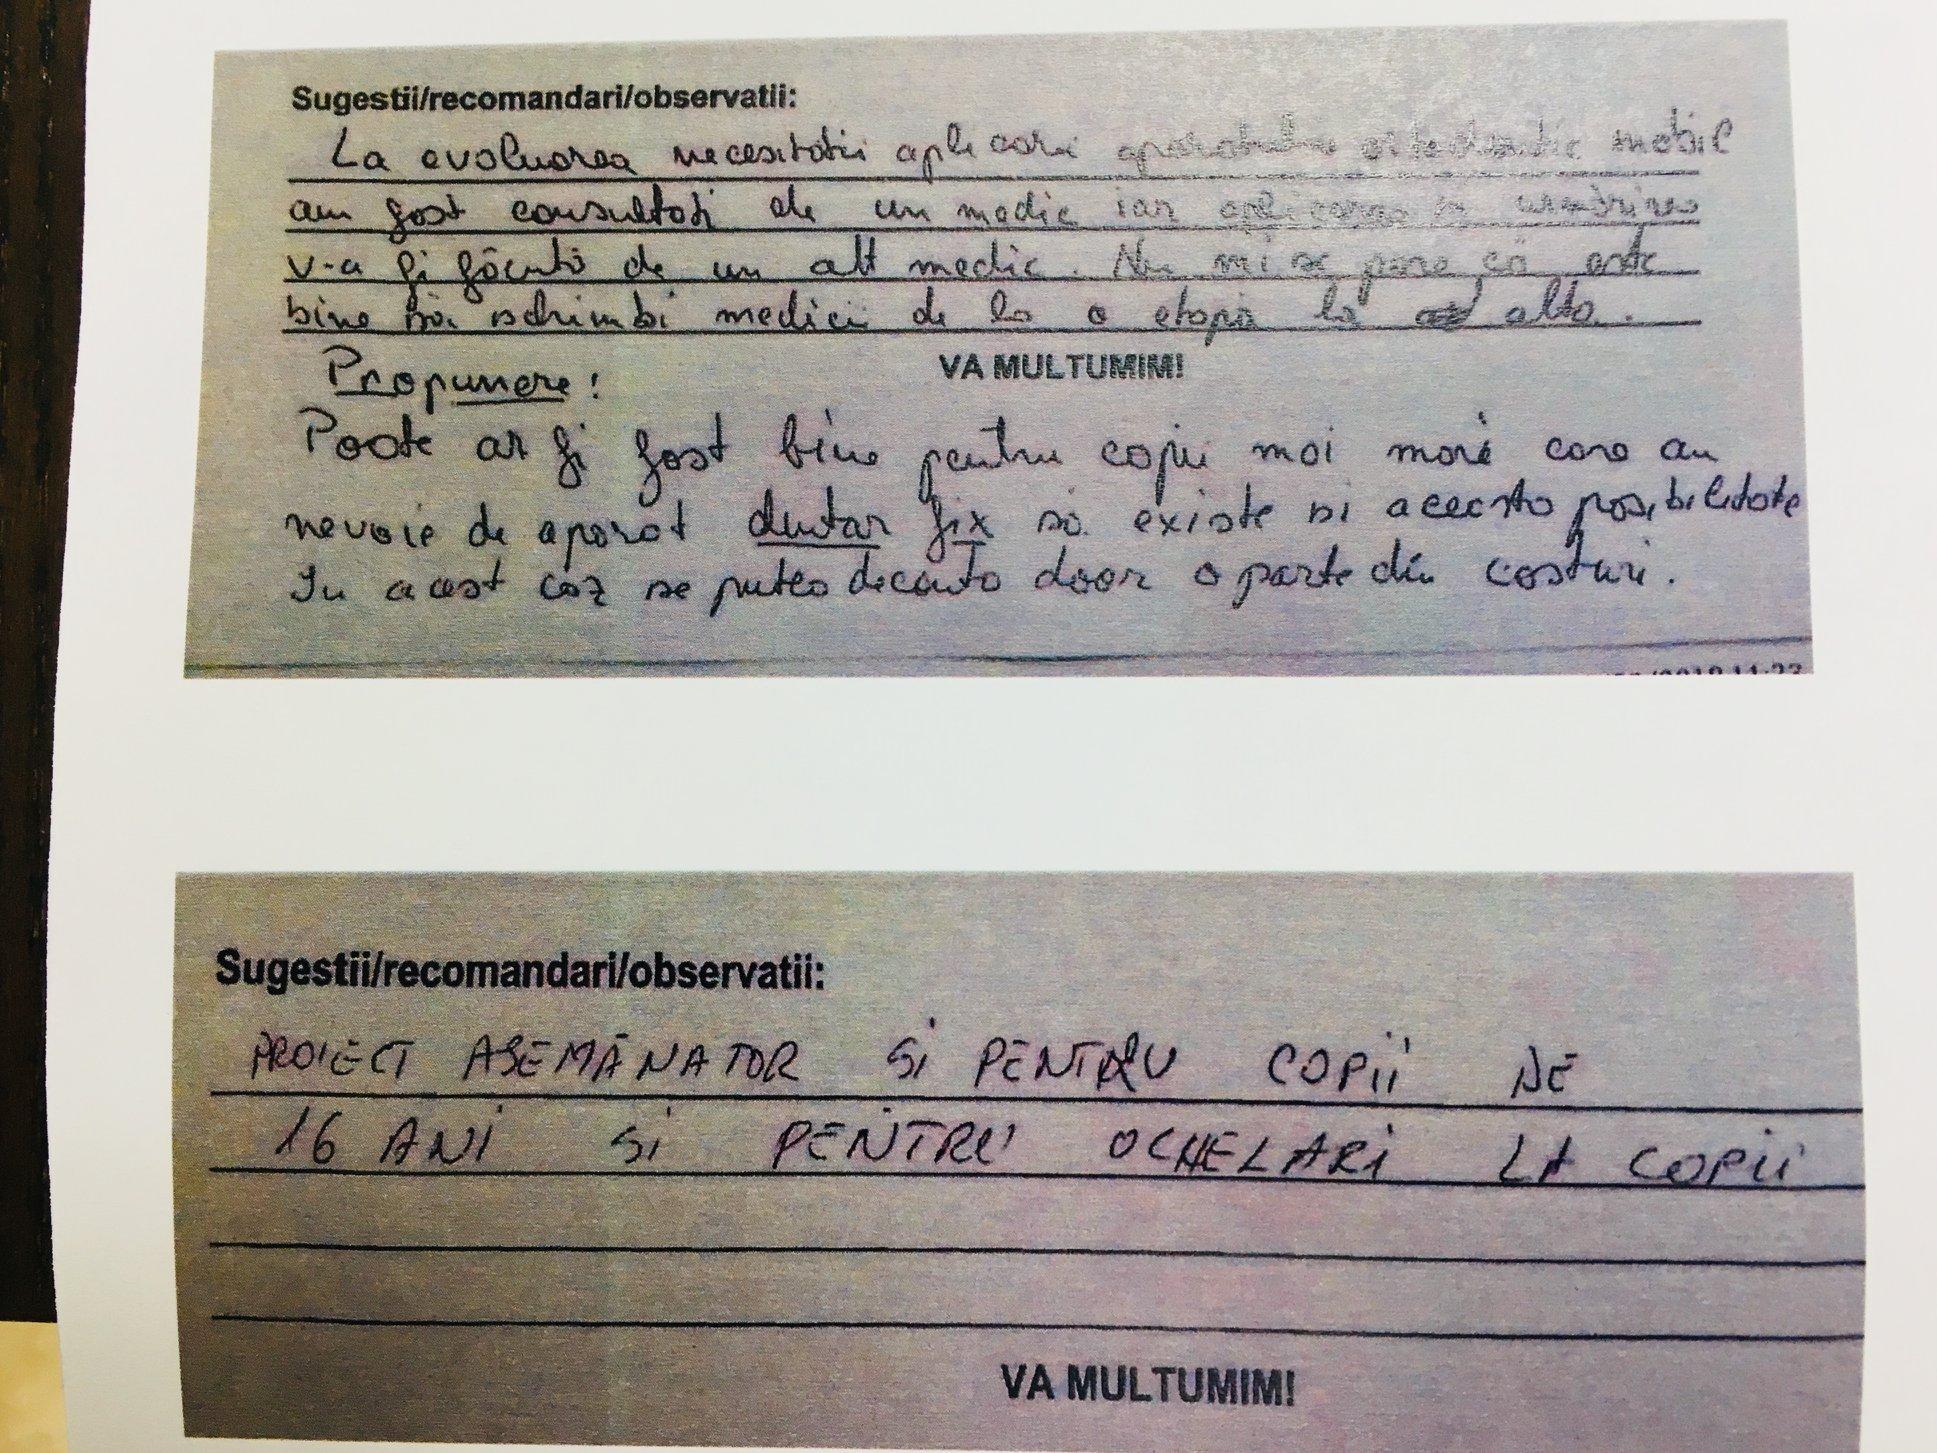 Sugestii/recomandari/observatii:
La evaluarea necesitatii aplicarii aparatului ortodontic mobil
am fost consultati de un medic iar aplicarea in
v-a fi făcută de un alt medic. Nu mi se pare că este
bine să schimbi medici de la o etapă la alta.
Propunere!
VA MULTUMIM!
Poate ar fi fost bine pentru copii mai mari care au
nevoie de aparat dentar fix să existe si aceasta posibilitate
In acest caz se putea deconta doar o parte din costuri.
Sugestii/recomandari/observatii:
PROIECT ASEMĂNATOR SI PENTRU COPII DE
16 ANI SI PENTRU OCHELARI LA COPII
VA MULTUMIM!